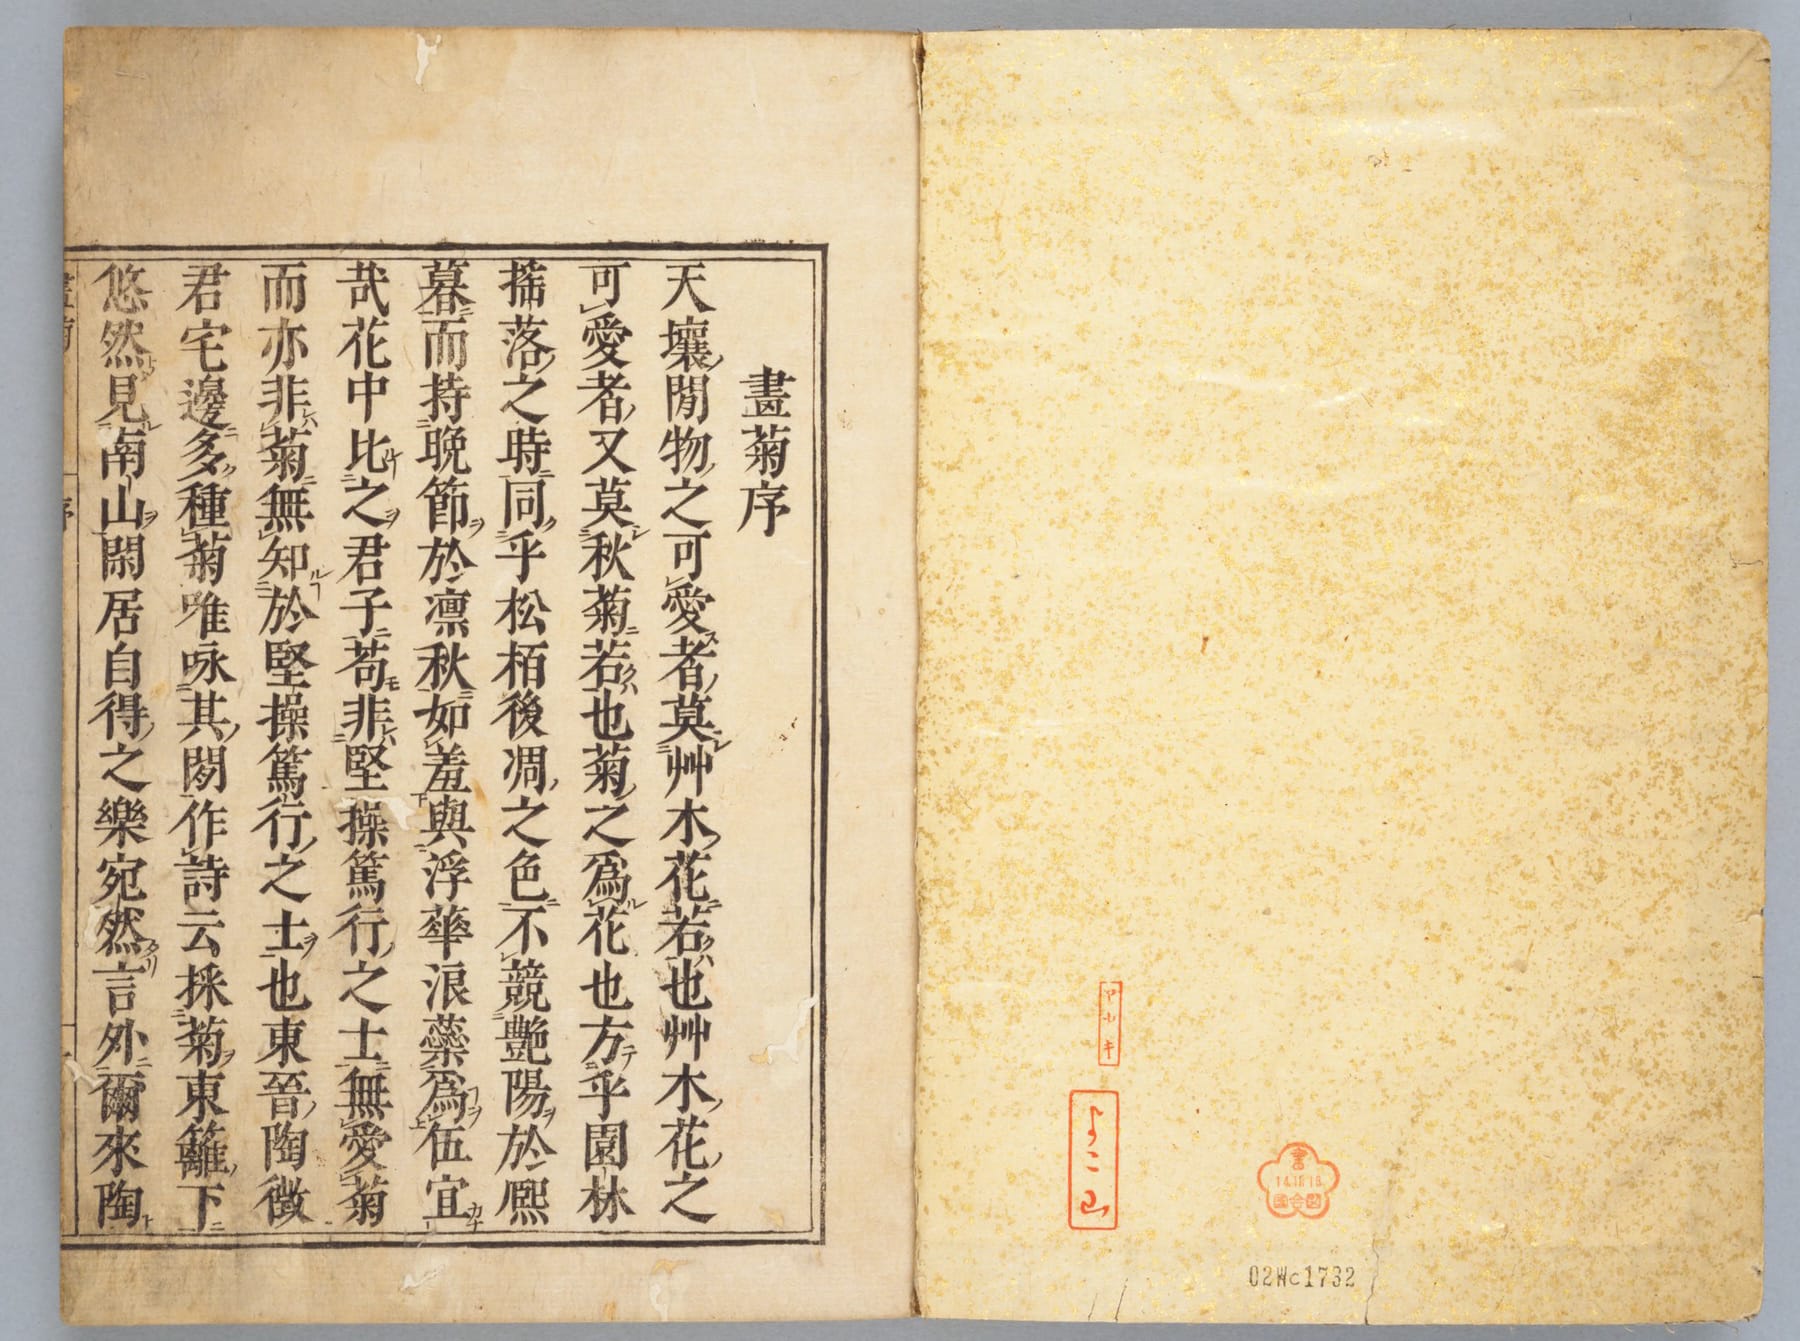 畫菊序
天壤閒物之可愛者莫艸木花若也艸木花之
可愛者又莫秋菊若也菊之爲花也方乎園林
搖落之時同乎松栢後凋之色不競艷陽於熈
暮而持晩節於凛秋如羞與浮華浪蘂爲伍宜
哉花中比之君子苟非堅操篤行之士無愛菊
而亦非菊無知於堅操篤行之士也東晉陶徴
君宅邊多種菊唯咏其閒作詩云採菊東籬下
悠然見南山閑居自得之樂宛然言外爾來陶
畫菊
序
よこ山
14.11.18
02Wc1732